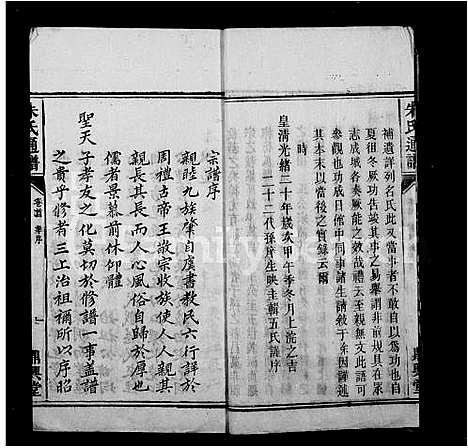 朱氏通譜
補遺詳列名氏此又當事者不敢自以爲功也自
夏徂冬厥功告竣其事之易舉謂非前規具在眾
志成城各奏厥能之效哉禮云至親無文此語可
參觀也功成日館中同事諸生請敘于余因謹述
其本末以當後之實錄云爾
時
皇清光緒二十年歲次甲午季冬月上浣之吉
二十二代孫
映奎輯五氏謹序
宗譜序
親睦九族肇自虞書教民六行詳於
周禮古帝王敬宗收族使人人親其
親長其長而人心風俗自歸於厚也
儒者景慕前休仰體
聖天子孝友之化莫切於修譜一事蓋譜
之爲乎修者三上治祖禰所以序昭
朱氏通譜
卷首
序
鼎興堂